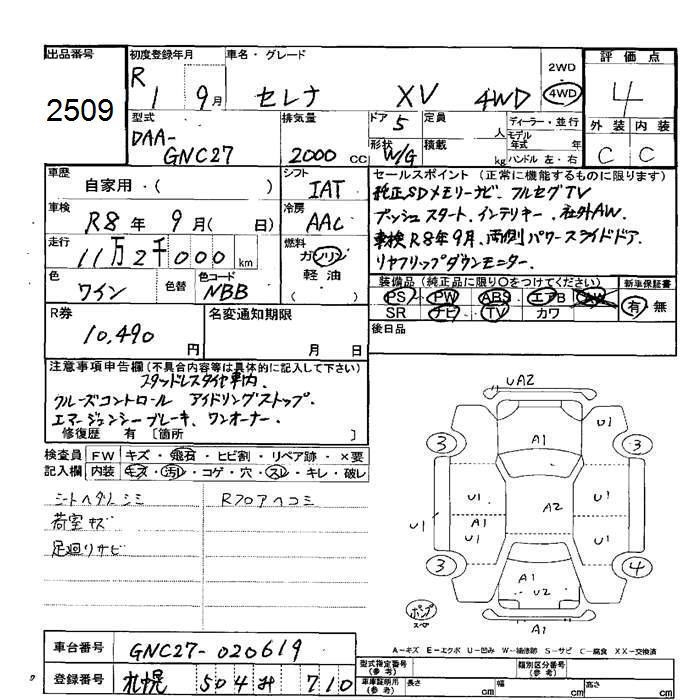 出品番号 初度登録年月 車名・グレード 評価点
2509 R1 9月 セレナ XV 4WD 2WD 4WD 4
型式 排気量 ドア 5 定員 人 ディーラー・並行 外装 内装
DAA-GNC27 2000 CC 形状 W/G 積載 kg モデル年式 年 ハンドル 左・右 C C
車歴 自家用・( ) シフト IAT
セールスポイント (正常に機能するものに限ります)
車検 R8年 9月( 日) 冷房 AAC
純正SDメモリーナビ、フルセグTV
プッシュスタート、インテリキー、社外AW、
走行 11万2千000km 燃料 ガソリン 軽油 ( )
車検R8年9月、両側パワースライドドア、
リヤフリップダウンモニター、
色 ワイン 色替 色コード NBB
装備品 (純正品に限り○をつけてください) 新車保証書
PS PW ABS エアB AW 有・無
SR ナビ TV カワ
R券 10,490円 名変通知期限 月 日
後日品
注意事項申告欄(不具合内容等は具体的に記入して下さい)
スタッドレスタイヤ車内、
クルーズコントロール アイドリングストップ、
エマージェンシーブレーキ、ワンオーナー、
修復歴 有 [箇所 ]
検査員 FW キズ・飛石・ヒビ割・リペア跡・×要
記入欄 内装 キズ・汚レ・コゲ・穴・スレ・キレ・破レ
シートヘタリシミ Rフロアヘコミ
荷室キズ
足廻りサビ
UA2
U1
3 A1 3
U1 A2 U1
U1 A1
U1 U1
3 A1 4
U2
ポンプ
スペア
A-キズ E-エクボ U-凹み W-補修跡 S-サビ C-腐食 XX-交換済
車台番号 GNC27-020619
型式指定番号(参考) 類別区分番号(参考)
登録番号 札幌 504 み 710
車庫証明用(参考) 長さ cm 幅 cm 高さ cm